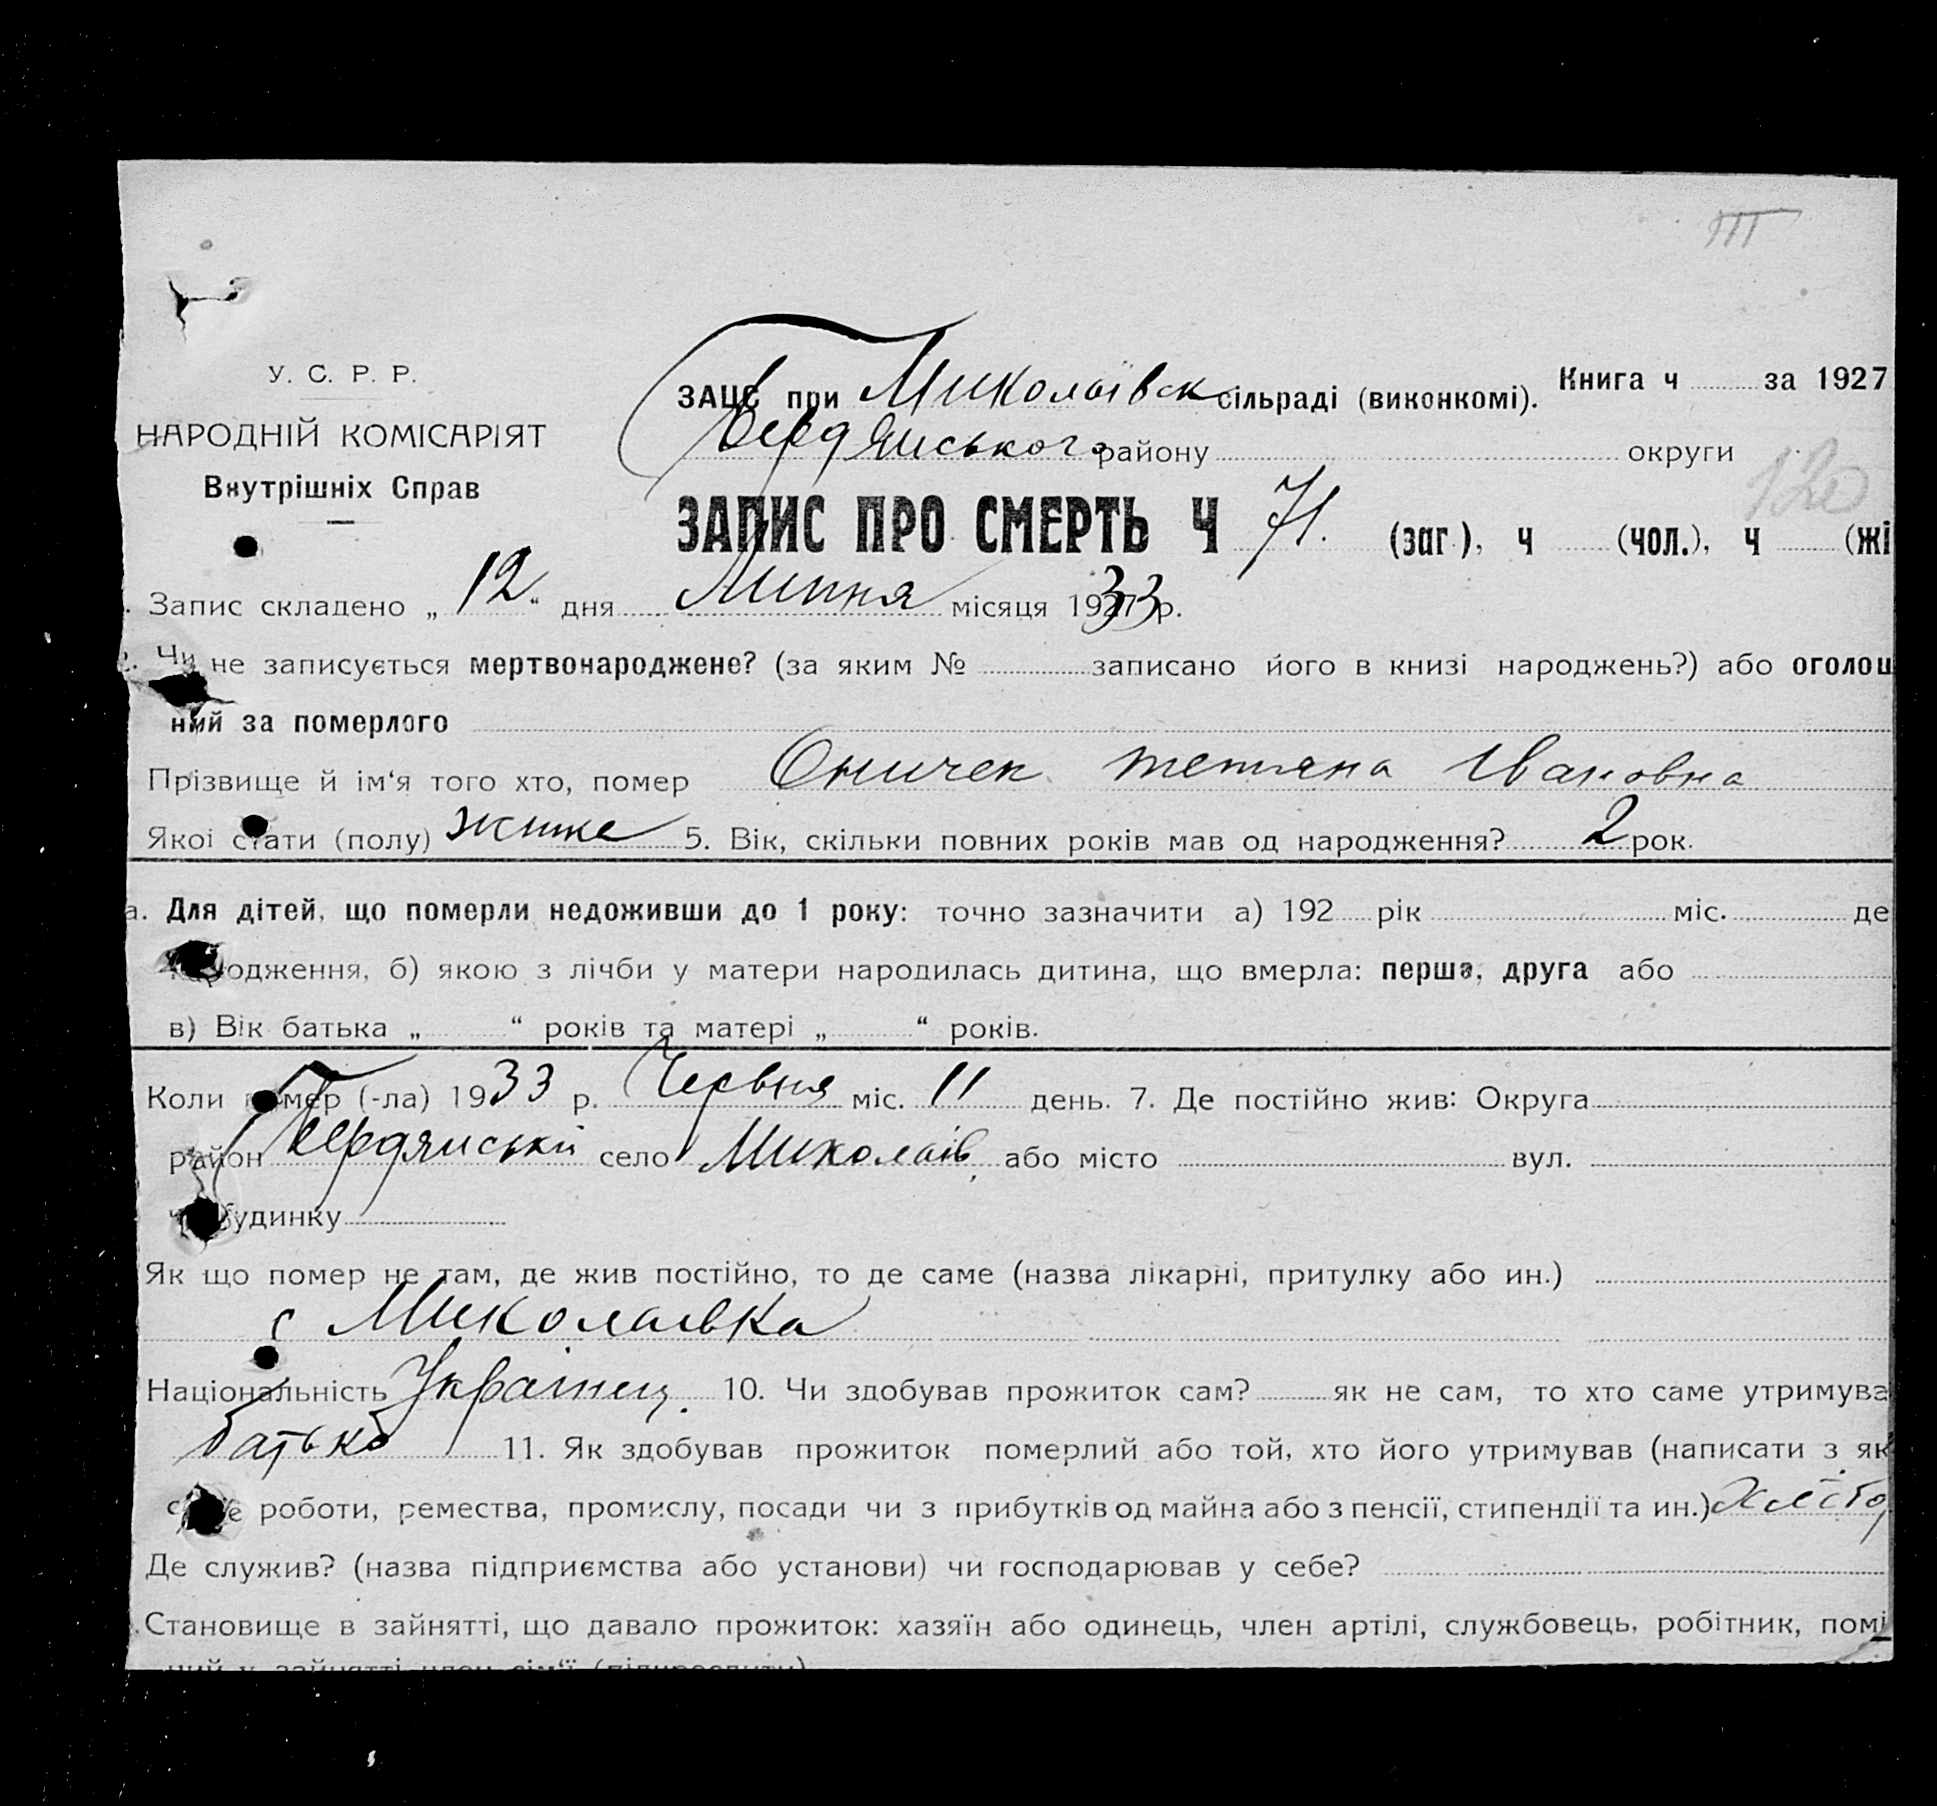 ІІІ
У. С. Р. Р.
НАРОДНІЙ КОМІСАРІЯТ
Внутрішніх Справ
ЗАЦС при Миколаївск сільраді (виконкомі). Книга ч за 1927
Бердянського району округи
120
ЗАПИС ПРО СМЕРТЬ Ч 71. (заг.), ч (чол.), ч (жі
Запис складено „ 12 “ дня Липня місяця 1933 р.
2. Чи не записується мертвонароджене? (за яким № записано його в книзі народжень?) або оголош
ний за померлого
Прізвище й ім‘я того хто, помер Оничек тетяна Івановна
Якої стати (полу) жінке 5. Вік, скільки повних років мав од народження? 2 рок.
а. Для дітей, що померли недоживши до 1 року: точно зазначити а) 192 рік міс. де
народження, б) якою з лічби у матери народилась дитина, що вмерла: перша, друга або
в) Вік батька „ “ років та матері „ “ років.
Коли помер (-ла) 1933 р. Червня міс. 11 день. 7. Де постійно жив: Округа
район Бердянський село Миколаїв, або місто вул.
ч. будинку
Як що помер не там, де жив постійно, то де саме (назва лікарні, притулку або ин.)
с Миколаівка
Національність Українец. 10. Чи здобував прожиток сам? як не сам, то хто саме утримува
батько 11. Як здобував прожиток померлий або той, хто його утримував (написати з як
саме роботи, ремества, промислу, посади чи з прибутків од майна або з пенсії, стипендії та ин.) Хлібор
Де служив? (назва підприємства або установи) чи господарював у себе?
Становище в зайнятті, що давало прожиток: хазяїн або одинець, член артілі, службовець, робітник, помі
ний у зайнятті член сім‘ї (підкреслити)